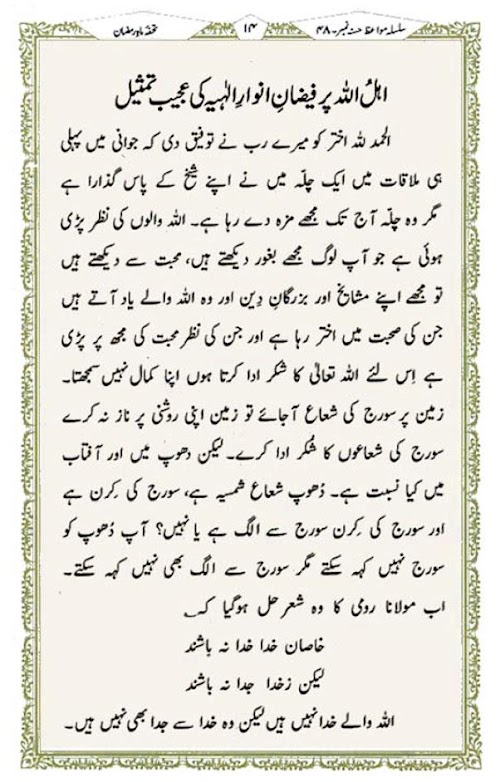 سلسلہ مواعظ حسنہ نمبر۔ ۴۸
۱۴
تحفۂ ماہِ رمضان
اہلُ اللہ پر فیضانِ انوارِ الٰہیہ کی عجیب تمثیل
الحمد للہ اختر کو میرے رب نے توفیق دی کہ جوانی میں پہلی
ہی ملاقات میں ایک چلّہ میں نے اپنے شیخ کے پاس گذارا ہے
مگر وہ چلّہ آج تک مجھے مزہ دے رہا ہے۔ اللہ والوں کی نظر پڑی
ہوئی ہے جو آپ لوگ مجھے بغور دیکھتے ہیں، محبت سے دیکھتے ہیں
تو مجھے اپنے مشایخ اور بزرگانِ دِین اور وہ اللہ والے یاد آتے ہیں
جن کی صحبت میں اختر رہا ہے اور جن کی نظر محبت کی مجھ پر پڑی
ہے اِس لئے اللہ تعالیٰ کا شکر ادا کرتا ہوں اپنا کمال نہیں سمجھتا۔
زمین پر سورج کی شعاع آجائے تو زمین اپنی روشنی پر ناز نہ کرے
سورج کی شعاعوں کا شُکر ادا کرے۔ لیکن دھوپ میں اور آفتاب
میں کیا نسبت ہے۔ دُھوپ شعاع شمسیہ ہے، سورج کی کِرن ہے
اور سورج کی کِرن سورج سے الگ ہے یا نہیں؟ آپ دُھوپ کو
سورج نہیں کہہ سکتے مگر سورج سے الگ بھی نہیں کہہ سکتے۔
اب مولانا رومی کا وہ شعر حل ہوگیا کہ؎
خاصان خدا خدا نہ باشند
لیکن زخدا جدا نہ باشند
اللہ والے خدا نہیں ہیں لیکن وہ خدا سے جدا بھی نہیں ہیں۔